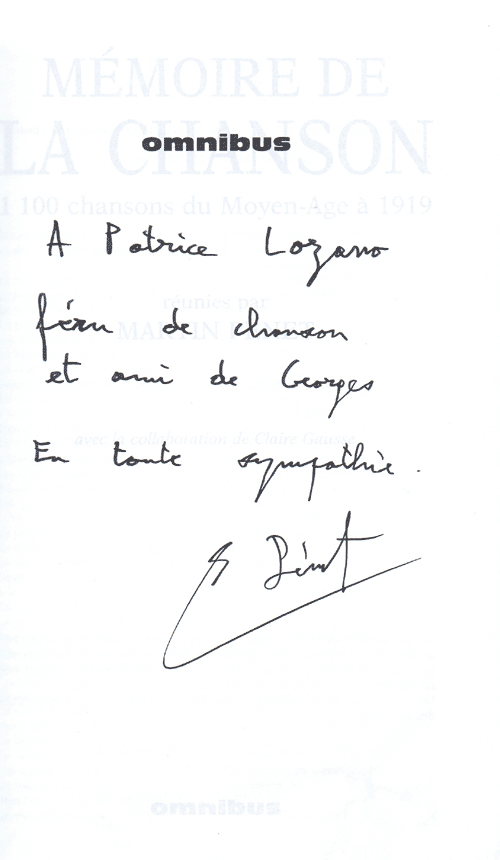 MÉMOIRE DE
LA CHANSON
omnibus
1 100 chansons du Moyen-Age à 1919
A Patrice Lozano
réunies par
MARTIN PÉNET
féru de chanson
et ami de Georges
avec la collaboration de Claire Gausse
En toute sympathie.
Pénet
omnibus